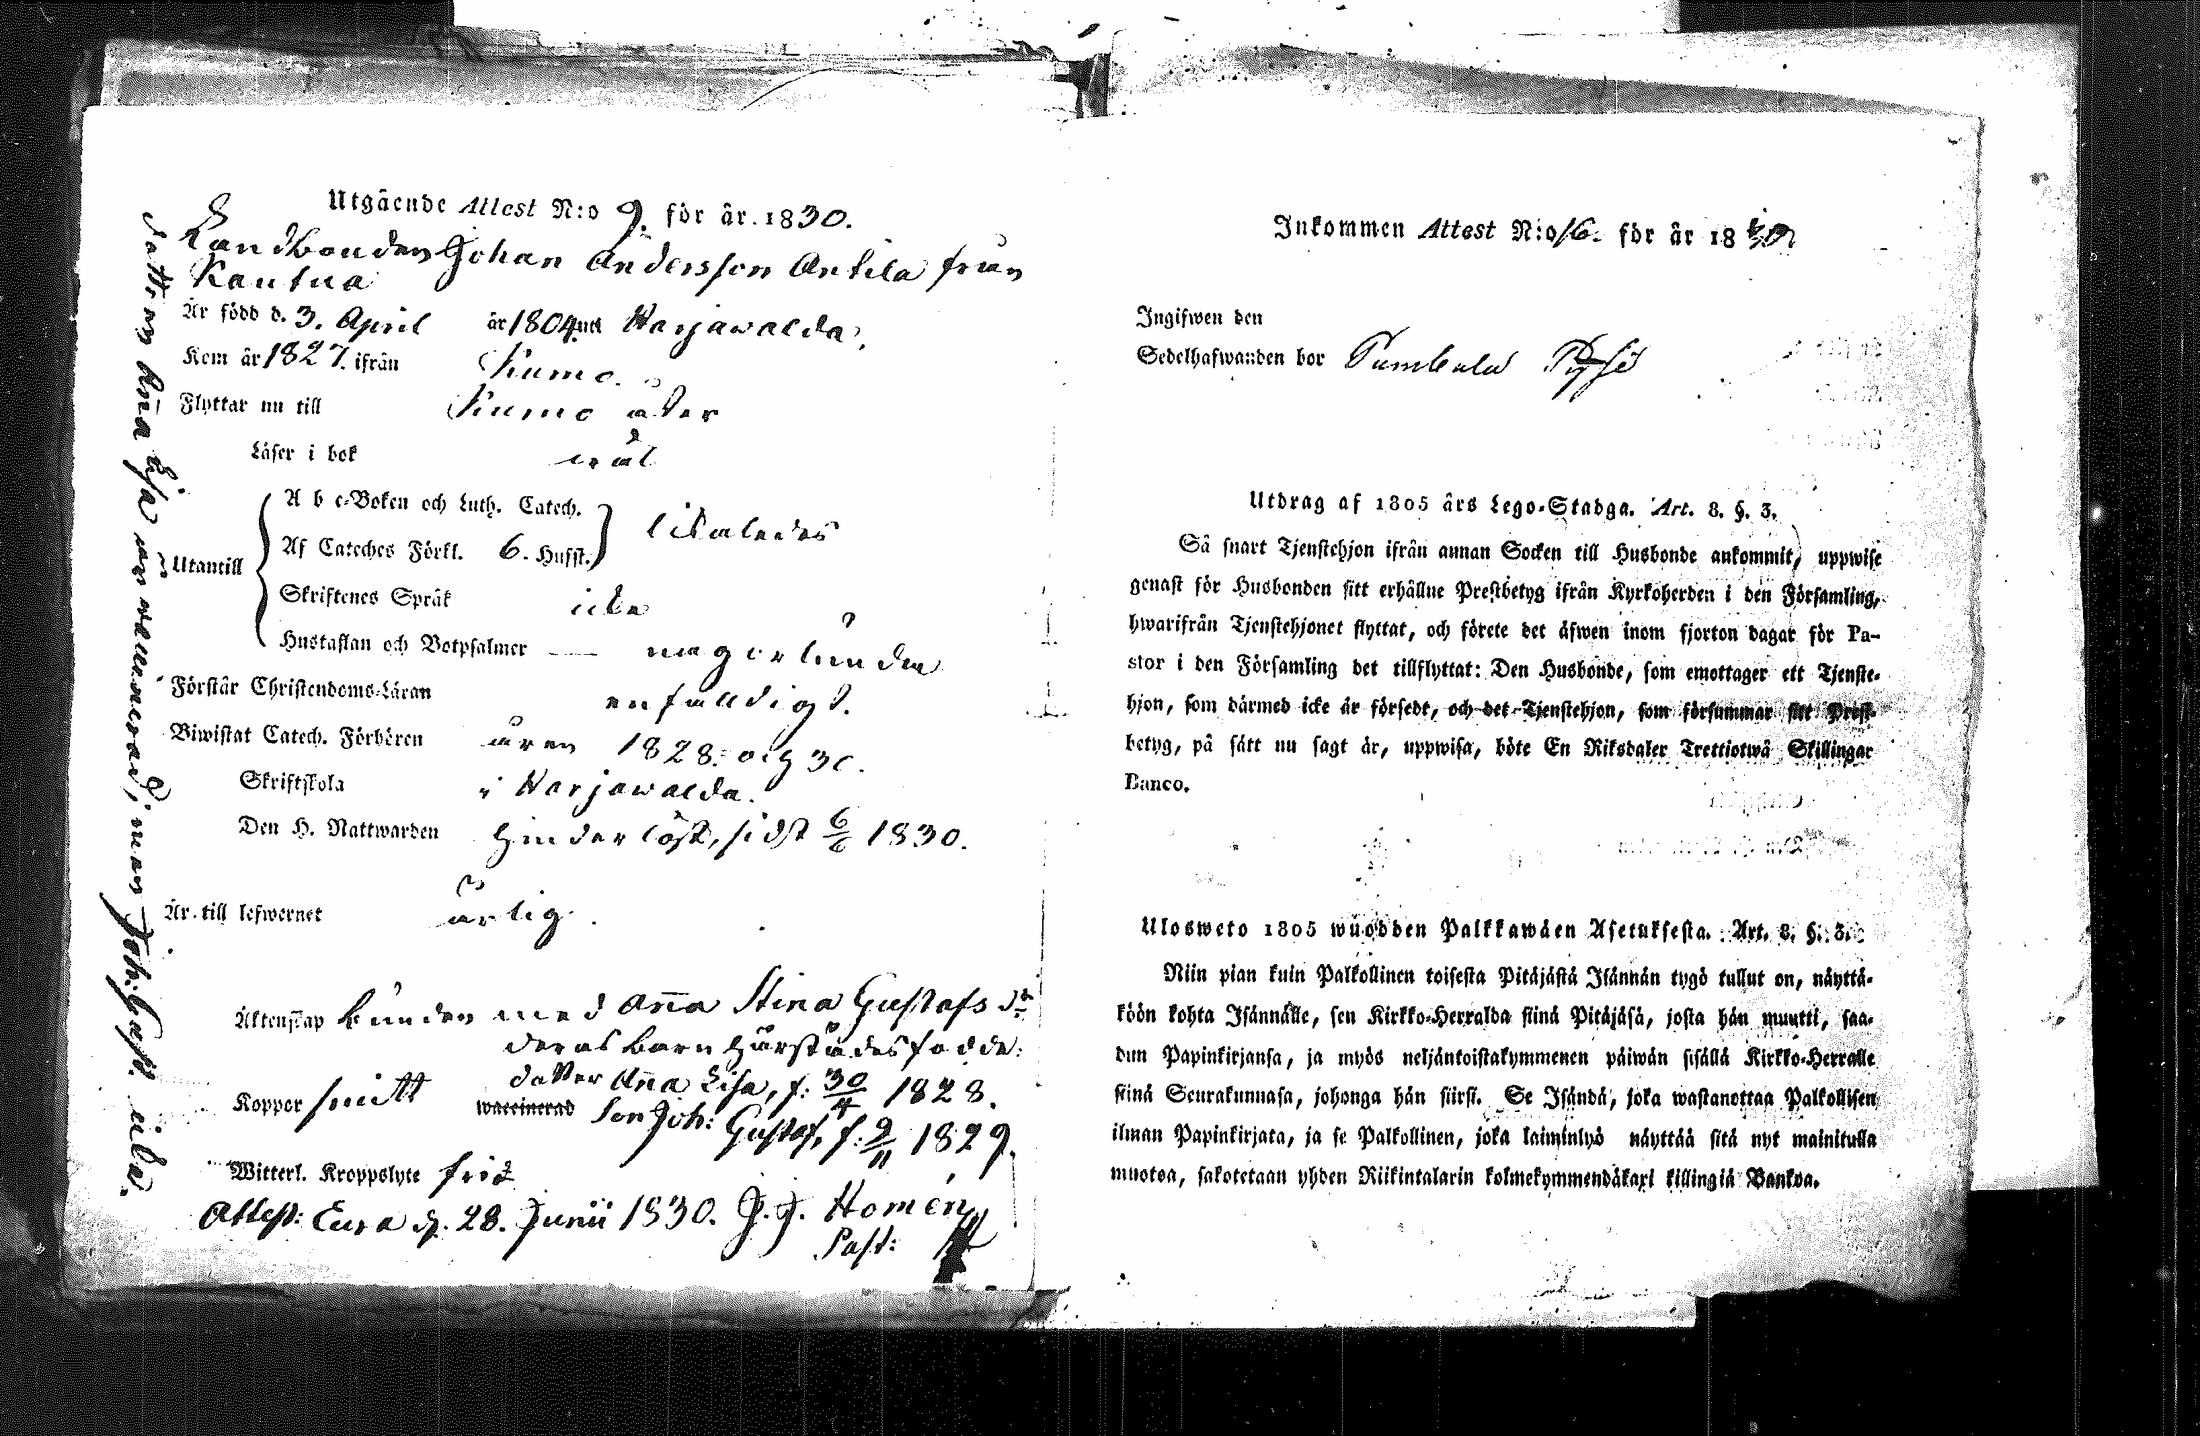 Utgående Attest N:o 9. för år 1830.
Landbonden Johan Andersson Antila från
Kautua
Är född d. 3. April år 1804. uti Harjawalda.
Kom år 1827. ifrån Kumo.
Flyttar nu till Kumo åter
Läser i bok wäl
Utantill
A b c-Boken och Luth. Catech.
Af Cateches Förkl. 6. Hufst. likaledes
Skriftenes Språk icke
Hustaflan och Botpsalmer — någorlunda
Förstår Christendoms-Läran enfaldigt.
Biwistat Catech. Förhören åren 1828. och 30.
Skriftskola i Harjawalda.
Den H. Nattwarden hinderlöst, sidst 6/6 1830.
Är till lefwernet ärlig.
Äktenskap bunden med Anna Stina Gustafs dr
deras barn härstädes födde:
dotter Anna Lisa, f. 30/4 1828.
Koppor smitt waccinerad Son Joh: Gustaf, f. 9/11 1829.
Witterl. Kroppslyte fri
Attest: Eura d. 28. Junii 1830. J. J. Homén
Past:
dottren Ana Lisa är vaccinerad, men Joh: Gust. icke.
Inkommen Attest N:o 16. för år 1830
Ingifwen den
Sedelhafwanden bor Pumbula
Utdrag af 1805 års Lego-Stadga. Art. 8. §. 3.
Så snart Tjenstehjon ifrån annan Socken till Husbonde ankommit, uppwise
genast för Husbonden sitt erhållne Prestbetyg ifrån Kyrkoherden i den Församling,
hwarifrån Tjenstehjonet flyttat, och förete det äfwen inom fjorton dagar för Pa-
stor i den Församling det tillflyttat: Den Husbonde, som emottager ett Tjenste-
hjon, som därmed icke är försedt, och det Tjenstehjon, som försummar sitt Prest-
betyg, på sätt nu sagt är, uppwisa, böte En Riksdaler Trettiotwå Skillingar
Banco.
Ulosweto 1805 wuodden Palkkawäen Asetuksesta. Art. 8. §. 3.
Niin pian kuin Palkollinen toisesta Pitäjästä Isännän tygö tullut on, näyttä-
köön kohta Isännälle, sen Kirkko-Herralda siinä Pitäjäsä, josta hän muutti, saa-
dun Papinkirjansa, ja myös neljäntoistakymmenen päiwän sisällä Kirkko-Herralle
siinä Seurakunnasa, johonga hän siirsi. Se Isändä, joka wastanottaa Palkollisen
ilman Papinkirjata, ja se Palkollinen, joka laiminlyö näyttää sitä nyt mainitulla
muotoa, sakotetaan yhden Riikintalarin kolmekymmendäkaxi killingiä Bankoa.